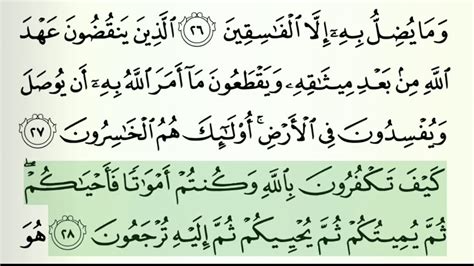 وَمَا يُضِلُّ بِهِۦٓ إِلَّا ٱلْفَٰسِقِينَ ٢٦ ٱلَّذِينَ يَنقُضُونَ عَهْدَ
ٱللَّهِ مِنۢ بَعْدِ مِيثَٰقِهِۦ وَيَقْطَعُونَ مَآ أَمَرَ ٱللَّهُ بِهِۦٓ أَن يُوصَلَ
وَيُفْسِدُونَ فِى ٱلْأَرْضِ ۚ أُو۟لَٰٓئِكَ هُمُ ٱلْخَٰسِرُونَ ٢٧
كَيْفَ تَكْفُرُونَ بِٱللَّهِ وَكُنتُمْ أَمْوَٰتًا فَأَحْيَٰكُمْ ۖ
ثُمَّ يُمِيتُكُمْ ثُمَّ يُحْيِيكُمْ ثُمَّ إِلَيْهِ تُرْجَعُونَ ٢٨ هُوَ